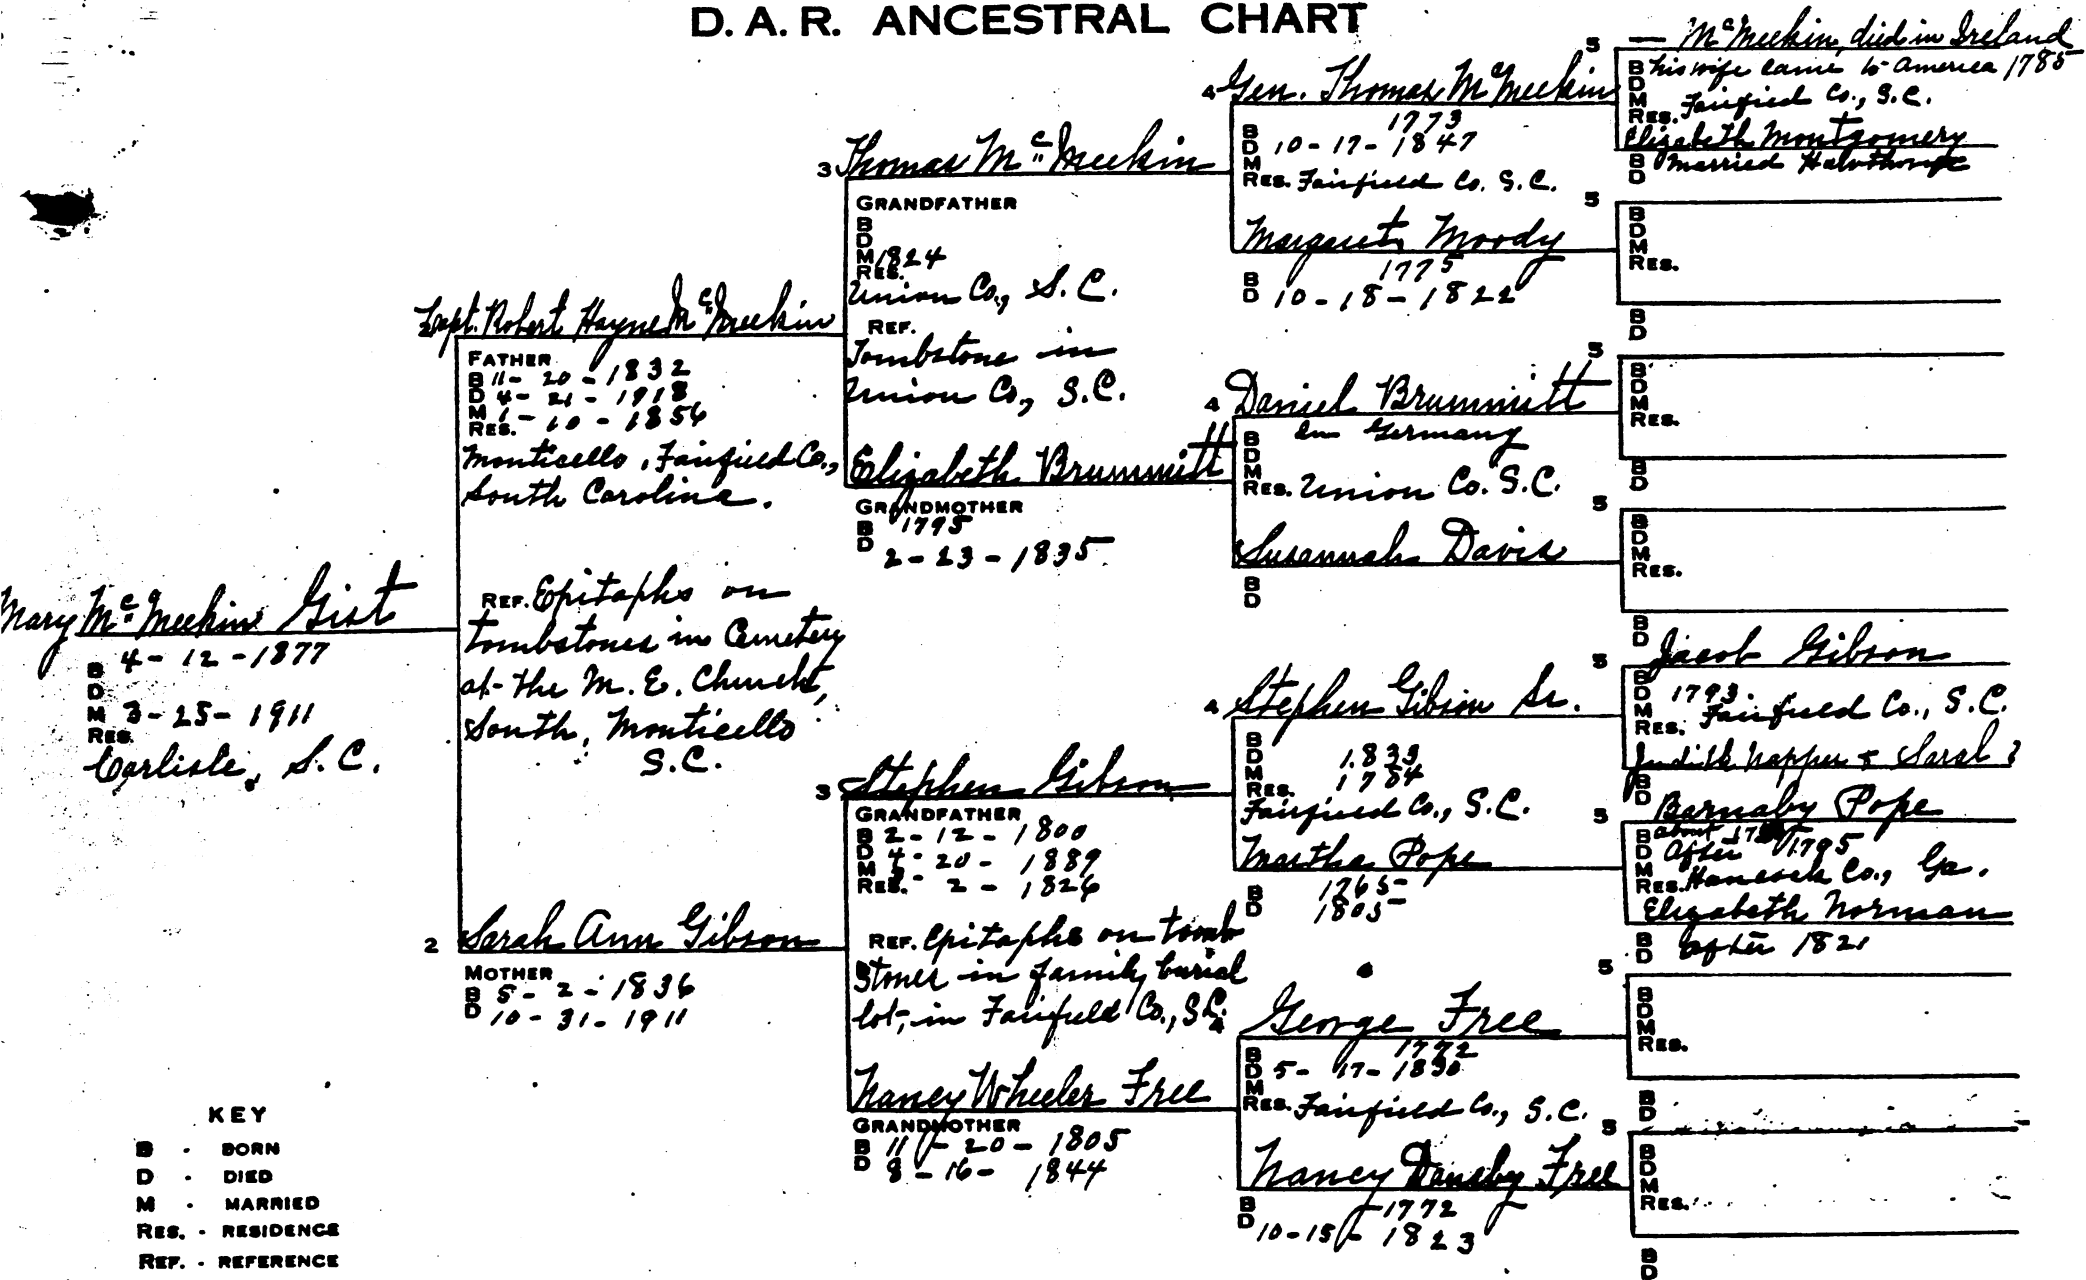 D.A.R. ANCESTRAL CHART
Mary McMeekin Gist
B 4-12-1877
D
M 3-25-1911
RES.
Carlisle, S.C.
Capt. Robert Hayne McMeekin
FATHER
B 11-20-1832
D 4-21-1918
M 1-10-1856
RES.
Monticello, Fairfield Co.,
South Carolina.
REF. Epitaphs on
tombstones in Cemetery
at the M.E. Church,
South, Monticello
S.C.
2 Sarah Ann Gibson
MOTHER
B 5-2-1836
D 10-31-1911
3 Thomas McMeekin
GRANDFATHER
B
D
M 1824
RES.
Union Co., S.C.
REF.
Tombstone in
Union Co., S.C.
Elizabeth Brummitt
GRANDMOTHER
B 1795
D 2-23-1835
3 Stephen Gibson
GRANDFATHER
B 2-12-1800
D 4-20-1889
M 2-1826
RES.
REF. Epitaphs on tomb
stones in family burial
lot, in Fairfield Co., S.C.
Nancy Wheeler Free
GRANDMOTHER
B 11-20-1805
D 8-16-1844
4 Gen. Thomas McMeekin
B 1773
D 10-17-1847
M
RES. Fairfield Co. S.C.
Margaret Moody
B 1775
D 10-18-1822
4 Daniel Brummitt
B In Germany
D
M
RES. Union Co. S.C.
Susannah Davis
B
D
4 Stephen Gibson Sr.
B
D 1833
M 1784
RES.
Fairfield Co., S.C.
Martha Pope
B 1765
D 1805
4 George Free
B 1772
D 5-17-1830
M
RES. Fairfield Co., S.C.
Nancy Dansby Free
B 1772
D 10-15-1823
5 — McMeekin, died in Ireland
B his wife came to America 1785
D
M
RES. Fairfield Co., S.C.
Elizabeth Montgomery
B Married
D
5
B
D
M
RES.
B
D
5
B
D
M
RES.
B
D
5
B
D
M
RES.
B
D
5 Jacob Gibson
B
D 1793
M
RES. Fairfield Co., S.C.
Judith Napper & Sarah ?
B
D
5 Barnaby Pope
B about
D After 1795
M
RES. Hancock Co., Ga.
Elizabeth Norman
B
D after 1821
5
B
D
M
RES.
B
D
5
B
D
M
RES.
B
D
KEY
B - BORN
D - DIED
M - MARRIED
RES. - RESIDENCE
REF. - REFERENCE